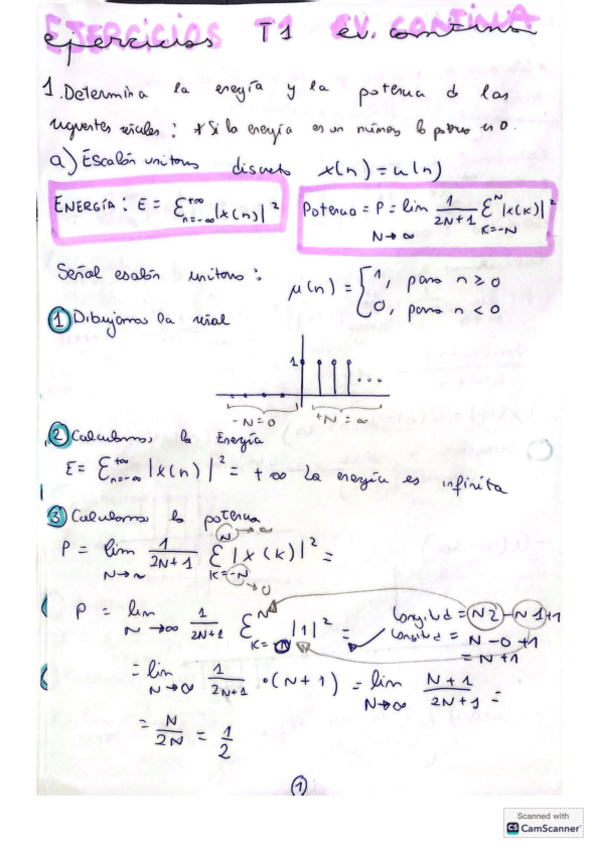 EJERCICIOS T1 EV. CONTINUA
ejercicios T1 ev. continua
1. Determina la energía y la potencia de las
siguientes señales: * Si la energía es un número la potencia es 0.
a) Escalón unitario discreto x(n) = u(n)
ENERGÍA: E = Σ n=-∞ +∞ |x(n)|²
Potencia = P = lim N→∞ 1/2N+1 Σ K=-N N |x(k)|²
Señal escalón unitario: μ(n) = { 1, para n ≥ 0
0, para n < 0
1 Dibujamos la señal
1 ...
-N = 0 +N = ∞
2 Calculamos la Energía
E = Σ n=-∞ +∞ |x(n)|² = +∞ La energía es infinita
3 Calculamos la potencia
P = lim N→∞ 1/2N+1 Σ K=-N N |x(k)|² =
→ ∞
→ 0
P = lim N→∞ 1/2N+1 Σ K=0 N |1|² =
Longitud = N2 - N1 + 1
Longitud = N - 0 + 1
= N + 1
= lim N→∞ 1/2N+1 · (N+1) = lim N→∞ N+1/2N+1 =
= N/2N = 1/2
1
Scanned with
CS CamScanner